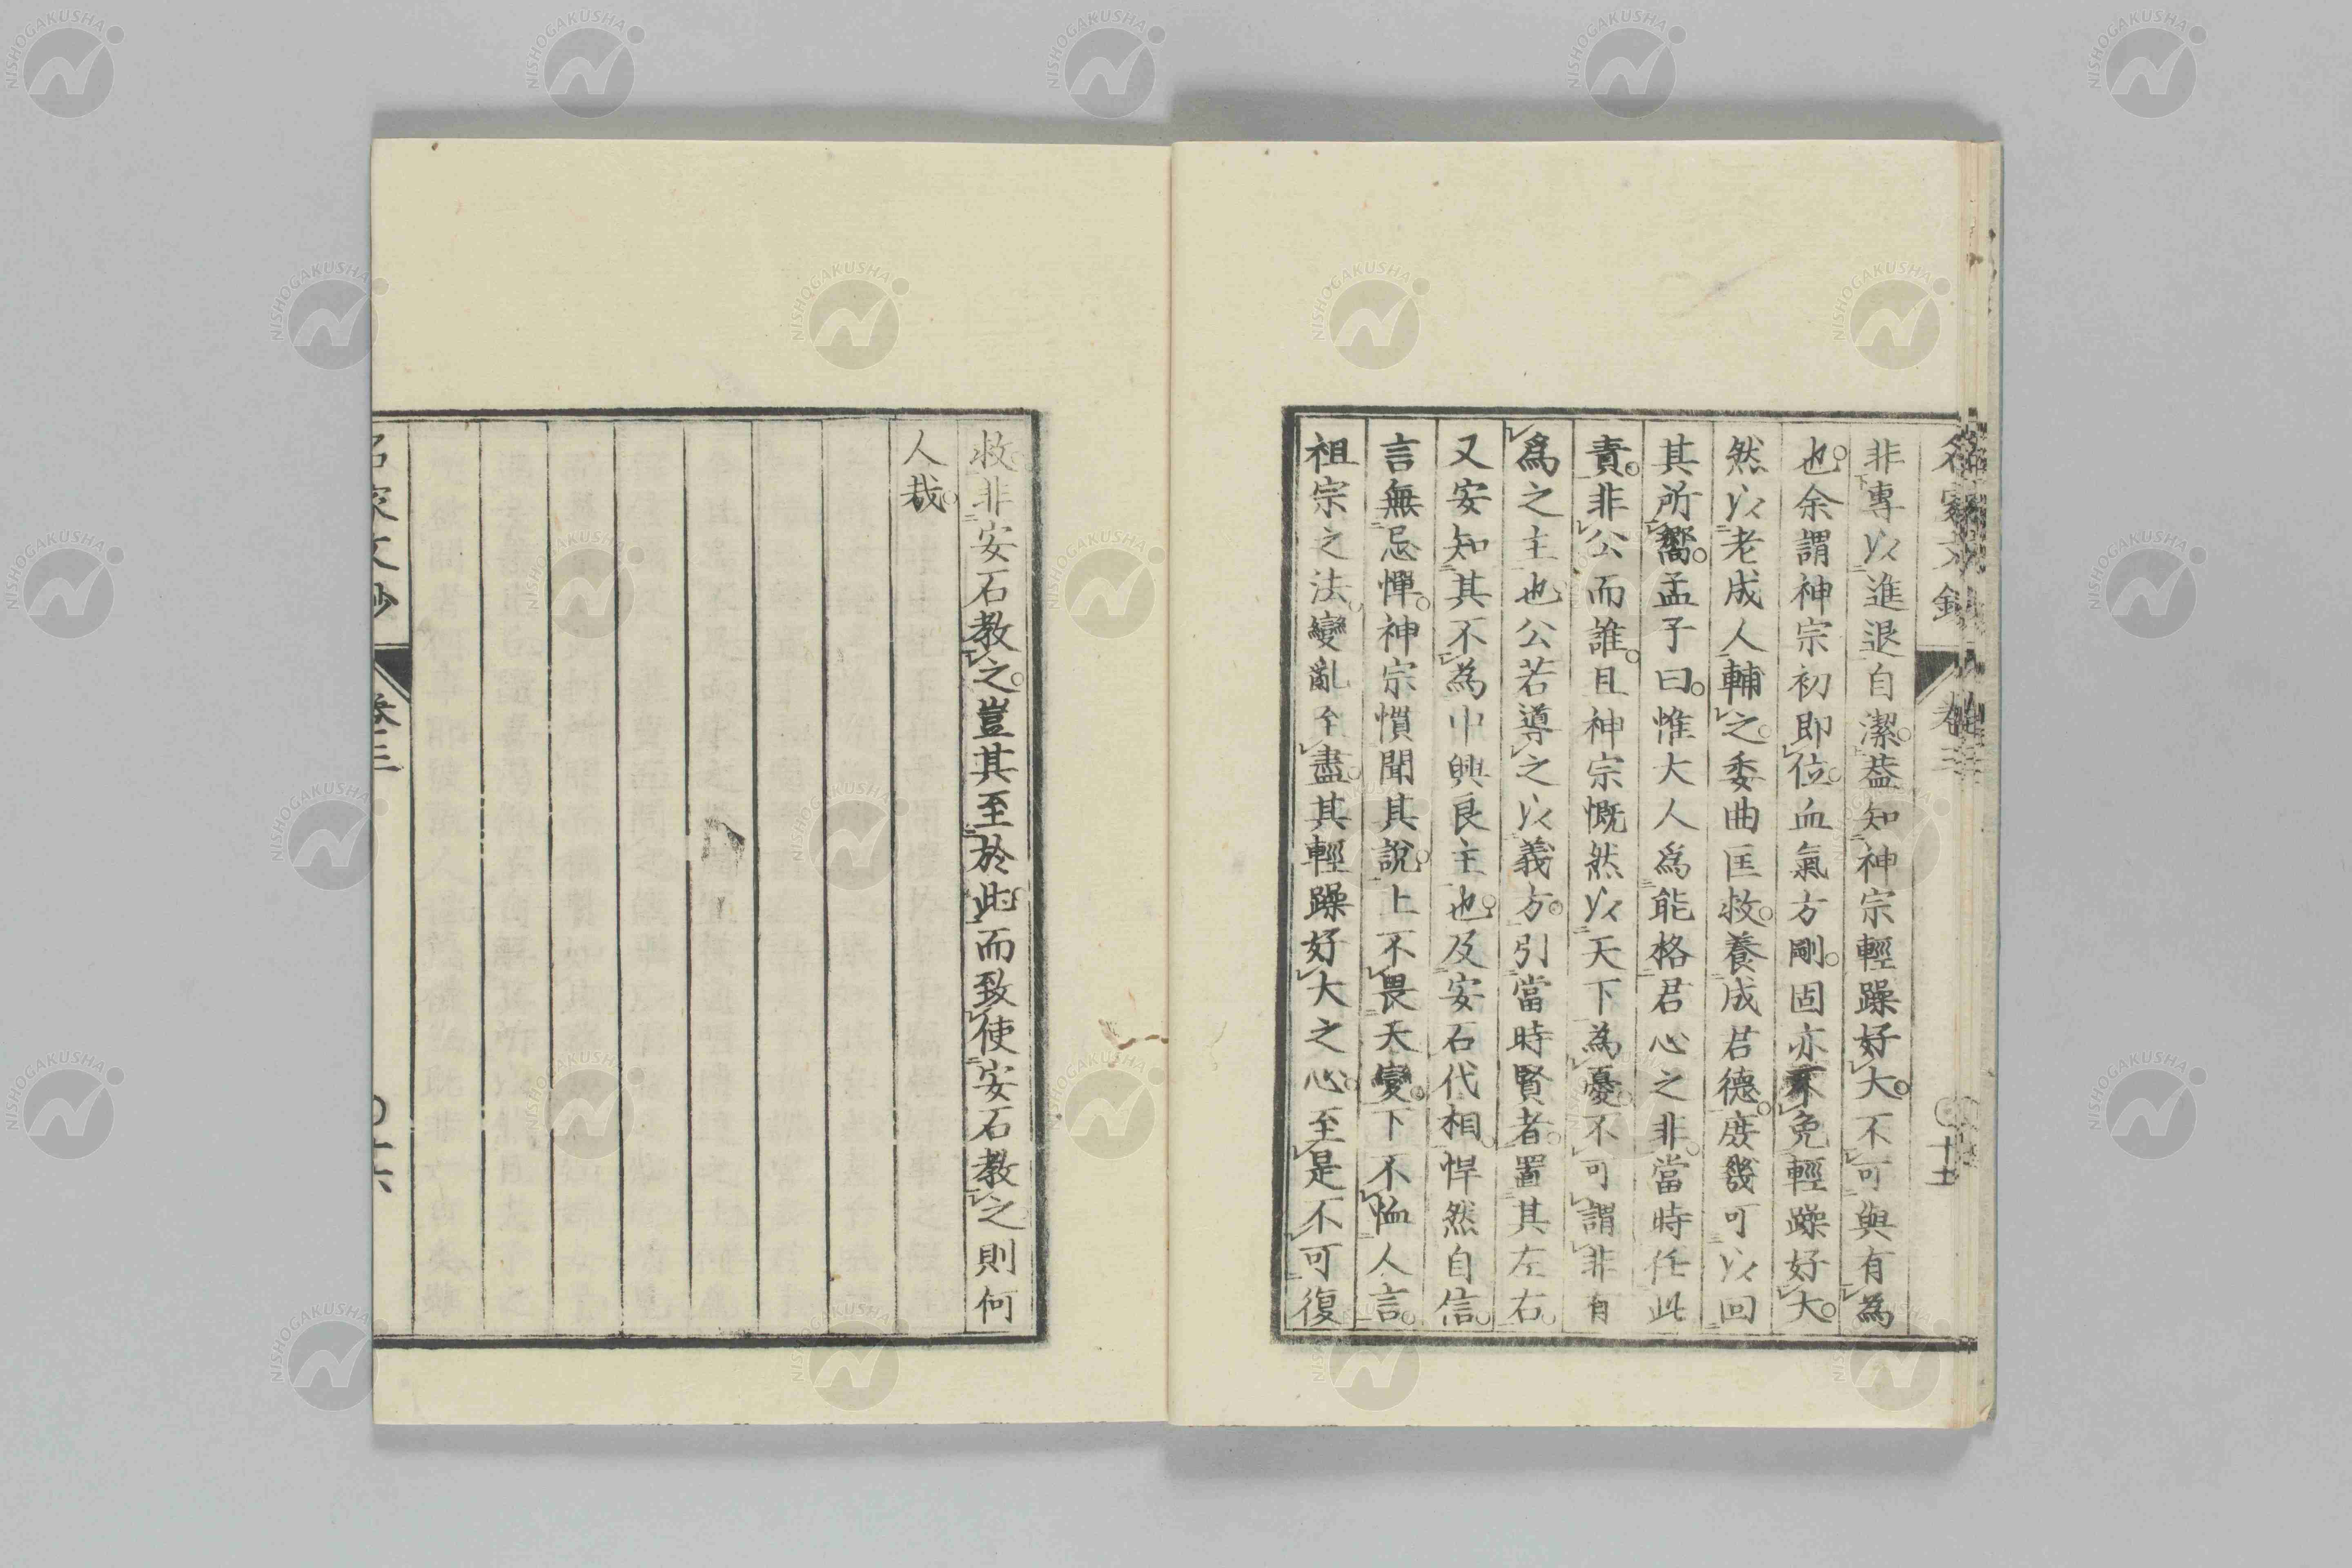 非專以進退自潔。蓋知神宗輕躁好大。不可與有為
也。余謂神宗初即位。血氣方剛。固亦不免輕躁好大。
然以老成人輔之。委曲匡救。養成君德。庶幾可以回
其所嚮。孟子曰。惟大人為能格君心之非。當時任此
責。非公而誰。且神宗慨然以天下為憂。不可謂非有
爲之主也。公若導之以義方。引當時賢者。置其左右。
又安知其不為中興良主也。及安石代相。悍然自信。
言無忌憚。神宗慣聞其說。上不畏天變。下不恤人言。
祖宗之法。變亂至盡。其輕躁好大之心。至是不可復
救。非安石教之。豈其至於此。而致使安石教之則何
人哉。
卷三
NISHOGAKUSHA